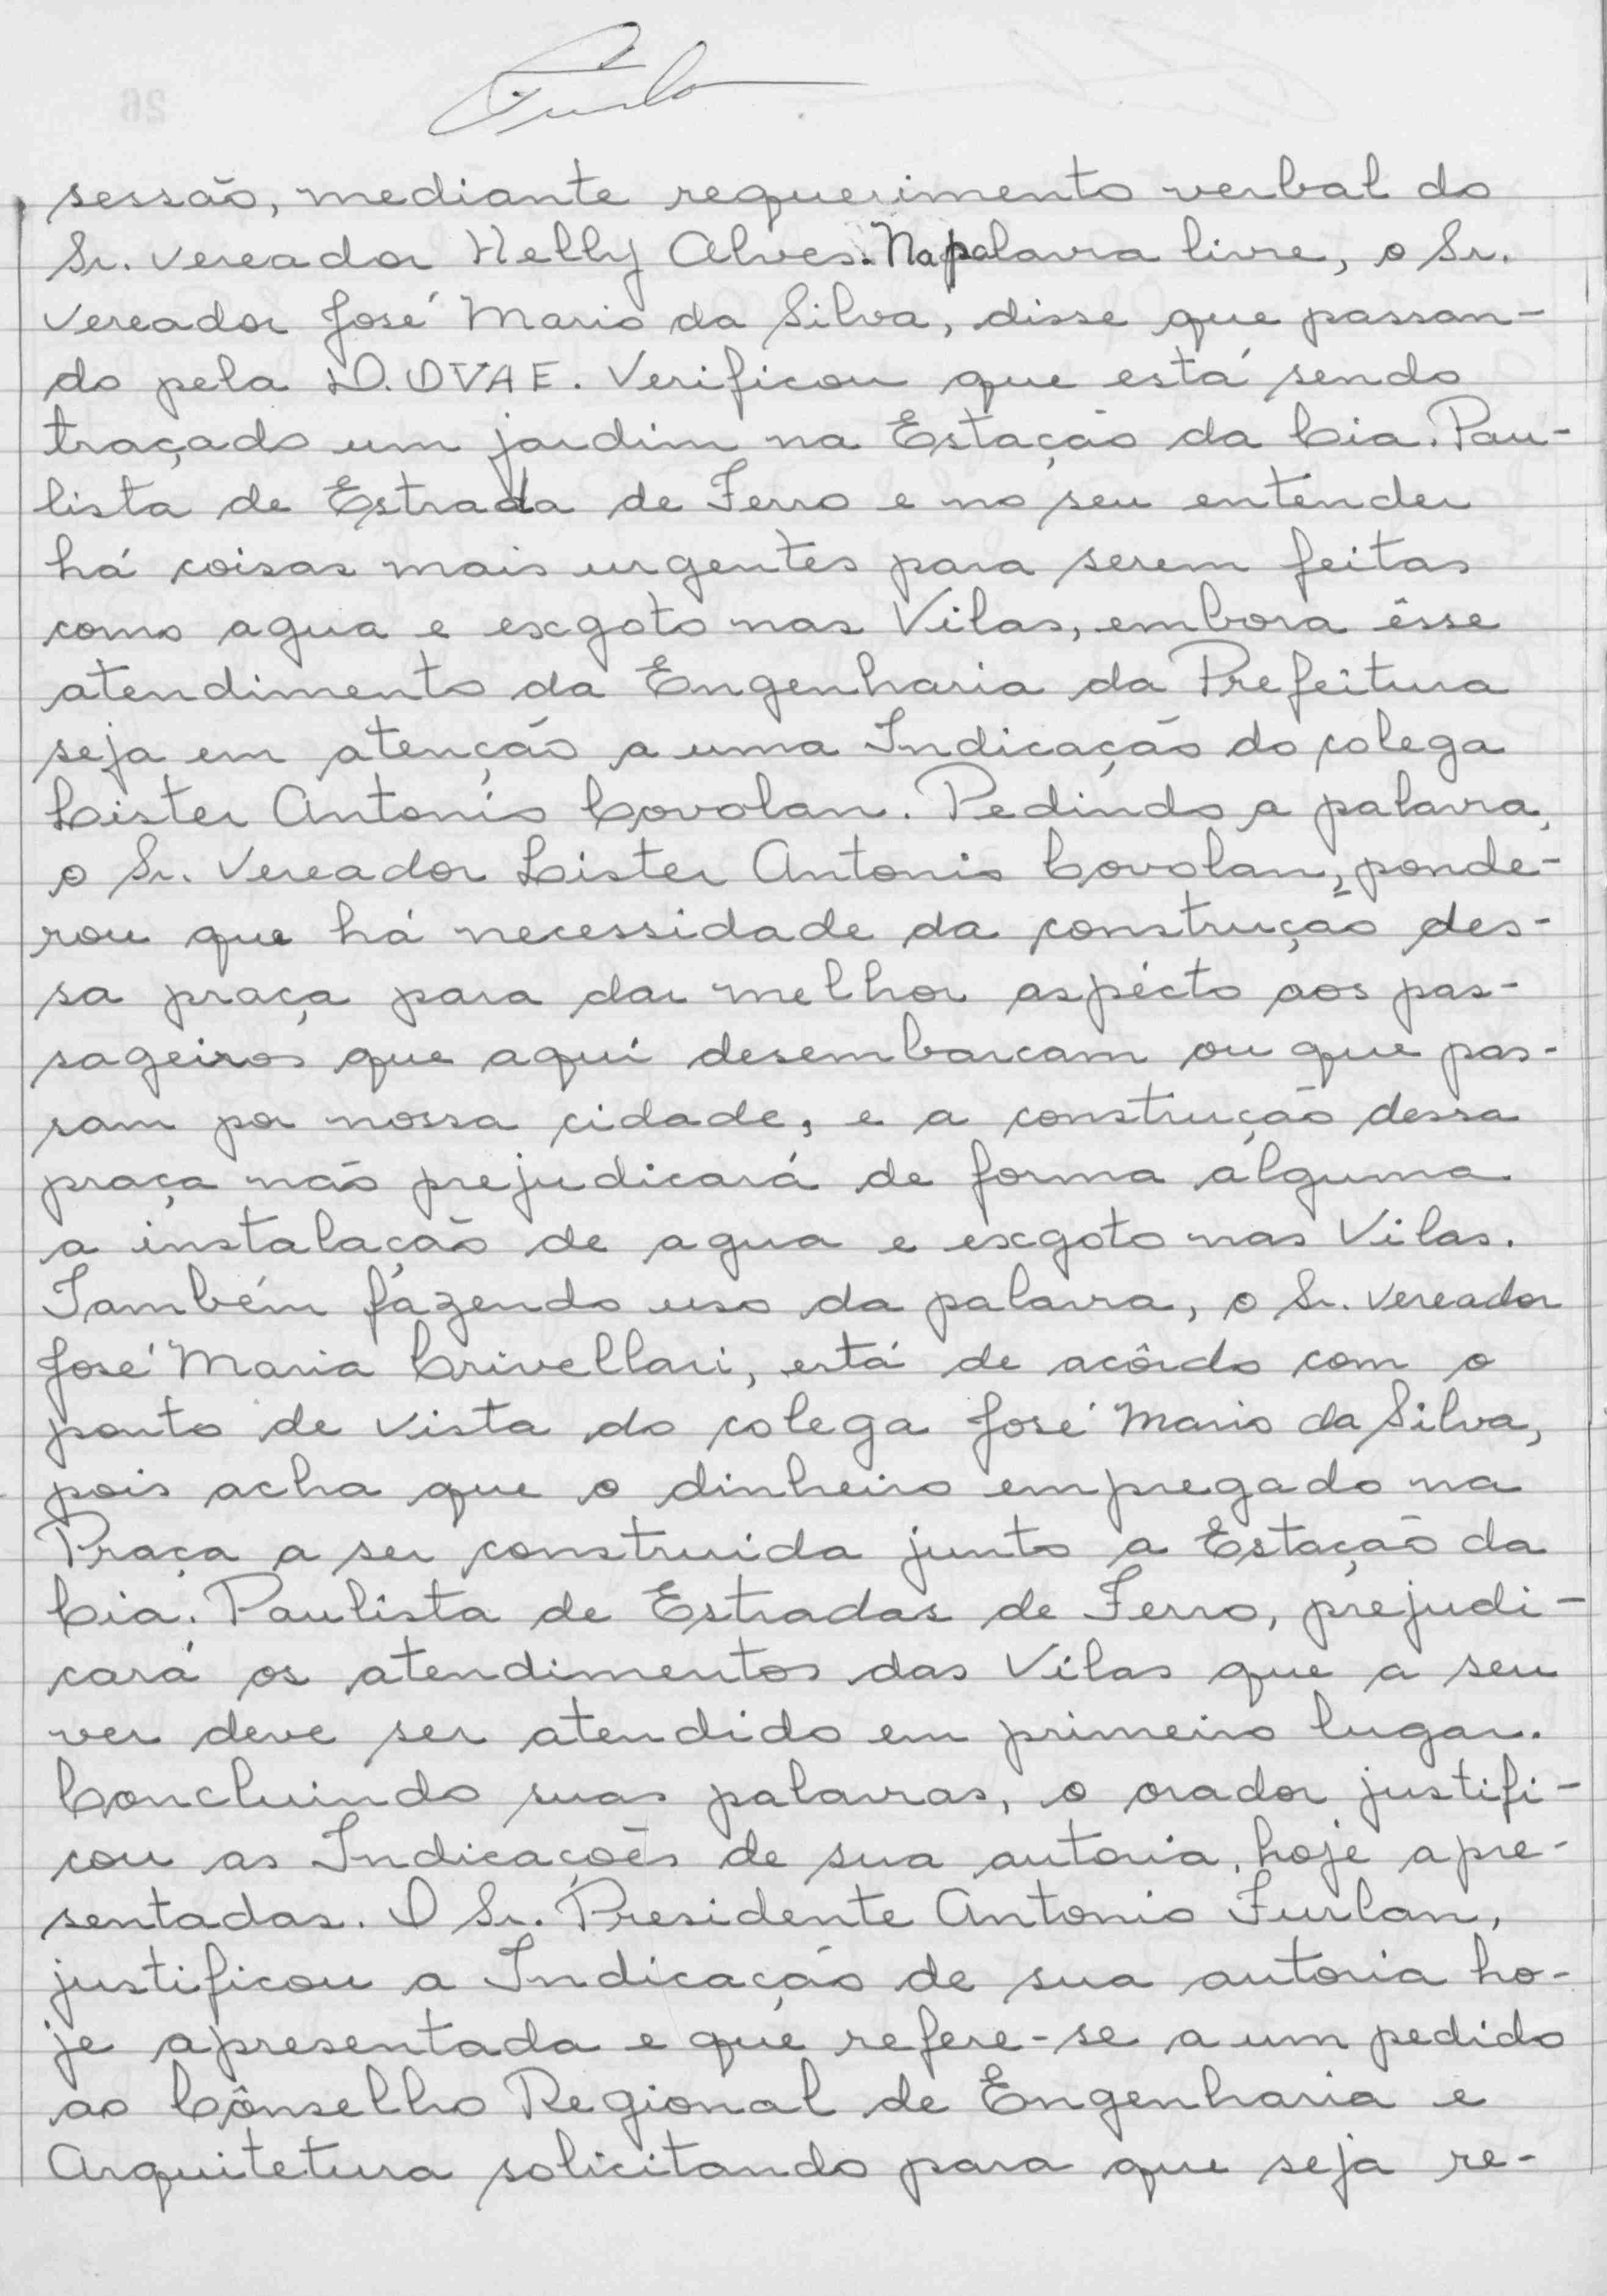 sessão, mediante requerimento verbal do
Sr. Vereador Helly Alves. Na palavra livre, o Sr.
Vereador José Mario da Silva, disse que passan-
do pela D.OVAE. Verificou que está sendo
traçado um jardim na Estação da Cia. Pau-
lista de Estrada de Ferro e no seu entender
há coisas mais urgentes para serem feitas
como agua e exgoto nas Vilas, embora êsse
atendimento da Engenharia da Prefeitura
seja em atenção a uma Indicação do colega
Lister Antonio Covolan. Pedindo a palavra,
o Sr. Vereador Lister Antonio Covolan, ponde-
rou que há necessidade da construção des-
sa praça para dar melhor aspécto aos pas-
sageiros que aqui desembarcam ou que pas-
sam por nossa cidade, e a construção dessa
praça não prejudicará de forma alguma
a instalação de agua e exgoto nas Vilas.
Também fazendo uso da palavra, o Sr. Vereador
José Maria Crivellari, está de acôrdo com o
ponto de vista do colega José Mario da Silva,
pois acha que o dinheiro empregado na
Praça a ser construida junto a Estação da
Cia. Paulista de Estradas de Ferro, prejudi-
cará os atendimentos das Vilas que a seu
ver deve ser atendido em primeiro lugar.
Concluindo suas palavras, o orador justifi-
cou as Indicações de sua autoria, hoje apre-
sentadas. O Sr. Presidente Antonio Furlan,
justificou a Indicação de sua autoria ho-
je apresentada e que refere-se a um pedido
ao Cônselho Regional de Engenharia e
Arquitetura solicitando para que seja re-